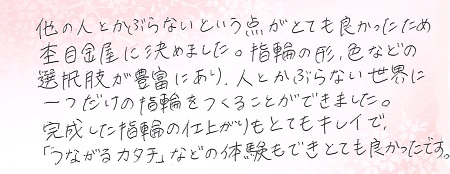 他の人とかぶらないという点がとても良かったため
杢目金屋に決めました。指輪の形、色などの
選択肢が豊富にあり、人とかぶらない世界に
一つだけの指輪をつくることができました。
完成した指輪の仕上がりもとてもキレイで、
「つながるカタチ」などの体験もできとても良かったです。